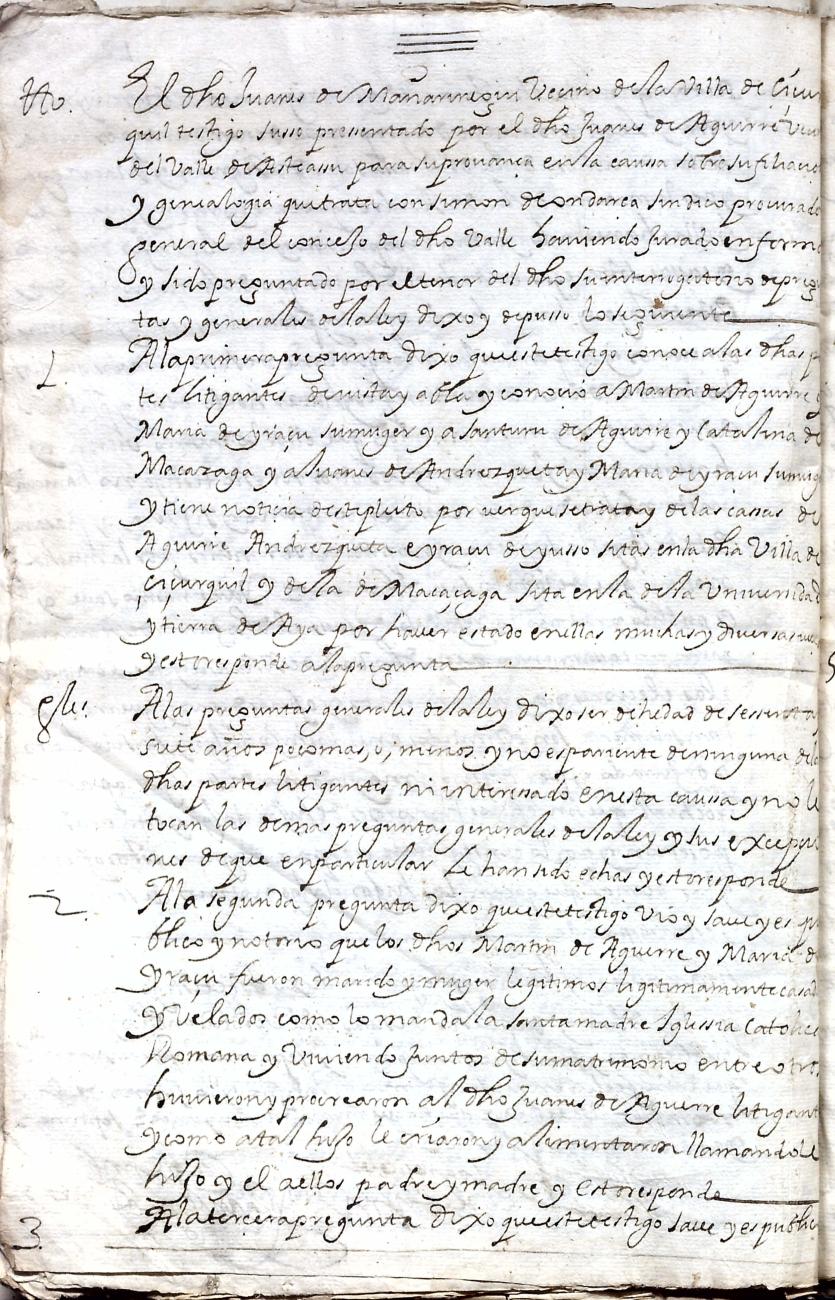 tto. El dho Juanes de Mañarrregui Vecino de la Villa de Çiçur
quil testigo susso pressentado por el dho Juanes de Aguirre Veci
del Valle de Asteassu para su provança en la caussa sobre su filiacio
y genealogia que trata con simon de ondarca sindico procurado
general del conceJo del dho Valle haviendo Jurado en forma
y sido preguntado por el tenor del dho su interrogatorio de pregu
tas y generales de la ley dixo y depusso lo seguiente
1. A la primera pregunta dixo que este testigo conoce a las dhas p
tes litigantes de vista y abla y conocio a Martin de Aguirre y
Maria de yraçu su muger y a santuru de Aguirre y Catalina de
Macazaga y a Juanes de Andrezqueta y Maria de yraçu su mug
y tiene noticia deste pleito por ver que se trata y de las cassas de
Aguirre Andrezqueta e yraçu de yusso sitas en la dha Villa de
Çiçurquil y de la de Macaçaga sita en la de la Universidad
y tierra de Aya por haver estado en ellas muchas y diversas vec
y esto responde a la pregunta
gles. A las preguntas generales de la ley dixo ser de hedad de sessenta y
siete años poco mas, o, menos y no es pariente de ninguna de la
dhas partes litigantes ni interessado en esta caussa y no le
tocan las demas preguntas generales de la ley y sus excepçi
nes de que en particular le han sido echas y esto responde
2. A la segunda pregunta dixo que este testigo vio y save y es pu
blico y notorio que los dhos Martin de Aguirre y Maria de
yraçu fueron marido y muger legitimos ligitimamente casad
y Velados como lo manda la santa madre Iglessia Catolica
Romana y Viviendo Juntos de su matrimonio entre otros
huvieron y procrearon al dho Juanes de Aguerre litigant
y como a tal hiJo le criaron y alimentaron llamandole
hiJo y el a ellos padre y madre y esto responde
3. A la tercera pregunta dixo que este testigo save y es public